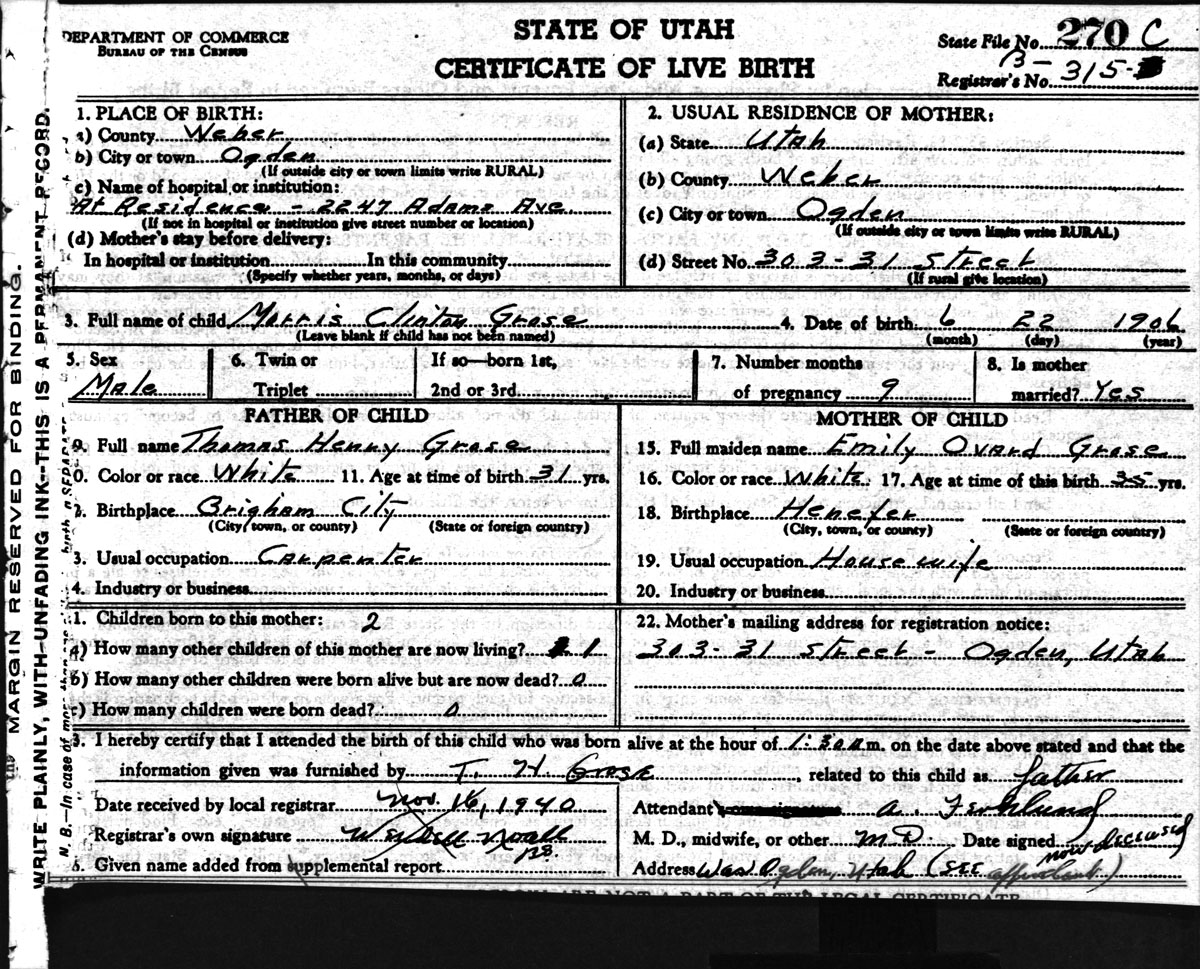 DEPARTMENT OF COMMERCE
BUREAU OF THE CENSUS
STATE OF UTAH
CERTIFICATE OF LIVE BIRTH
State File No. 270 C
B-
Registrar's No. 315-
1. PLACE OF BIRTH:
a) County Weber
b) City or town Ogden
(If outside city or town limits write RURAL)
c) Name of hospital or institution:
At Residence - 2247 Adams Ave.
(If not in hospital or institution give street number or location)
(d) Mother's stay before delivery:
In hospital or institution In this community
(Specify whether years, months, or days)
2. USUAL RESIDENCE OF MOTHER:
(a) State Utah
(b) County Weber
(c) City or town Ogden
(If outside city or town limits write RURAL)
(d) Street No. 303-31 Street
(If rural give location)
3. Full name of child Morris Clinton Grose 4. Date of birth 6 22 1906
(Leave blank if child has not been named) (month) (day) (year)
5. Sex Male
6. Twin or Triplet
If so—born 1st, 2nd or 3rd
7. Number months of pregnancy 9
8. Is mother married? Yes
FATHER OF CHILD
9. Full name Thomas Henry Grose
0. Color or race White 11. Age at time of birth 31 yrs.
2. Birthplace Brigham City
(City, town, or county) (State or foreign country)
3. Usual occupation Carpenter
4. Industry or business
MOTHER OF CHILD
15. Full maiden name Emily Ovard Grose
16. Color or race White 17. Age at time of this birth 35 yrs.
18. Birthplace Henefer
(City, town, or county) (State or foreign country)
19. Usual occupation House wife
20. Industry or business
1. Children born to this mother: 2
a) How many other children of this mother are now living? 1
b) How many other children were born alive but are now dead? 0
c) How many children were born dead? 0
22. Mother's mailing address for registration notice:
303-31 Street - Ogden, Utah
3. I hereby certify that I attended the birth of this child who was born alive at the hour of 1:30 a.m. on the date above stated and that the
information given was furnished by T. H. Grose, related to this child as father
Date received by local registrar Nov. 16, 1940
Registrar's own signature Wendell Noall
Given name added from supplemental report
Attendant's own signature A.
M. D., midwife, or other M D. Date signed now deceased
Address Was Ogden, Utah (see
MARGIN RESERVED FOR BINDING.
WRITE PLAINLY, WITH UNFADING INK—THIS IS A PERMANENT RECORD.
N. B.—In case of more than one